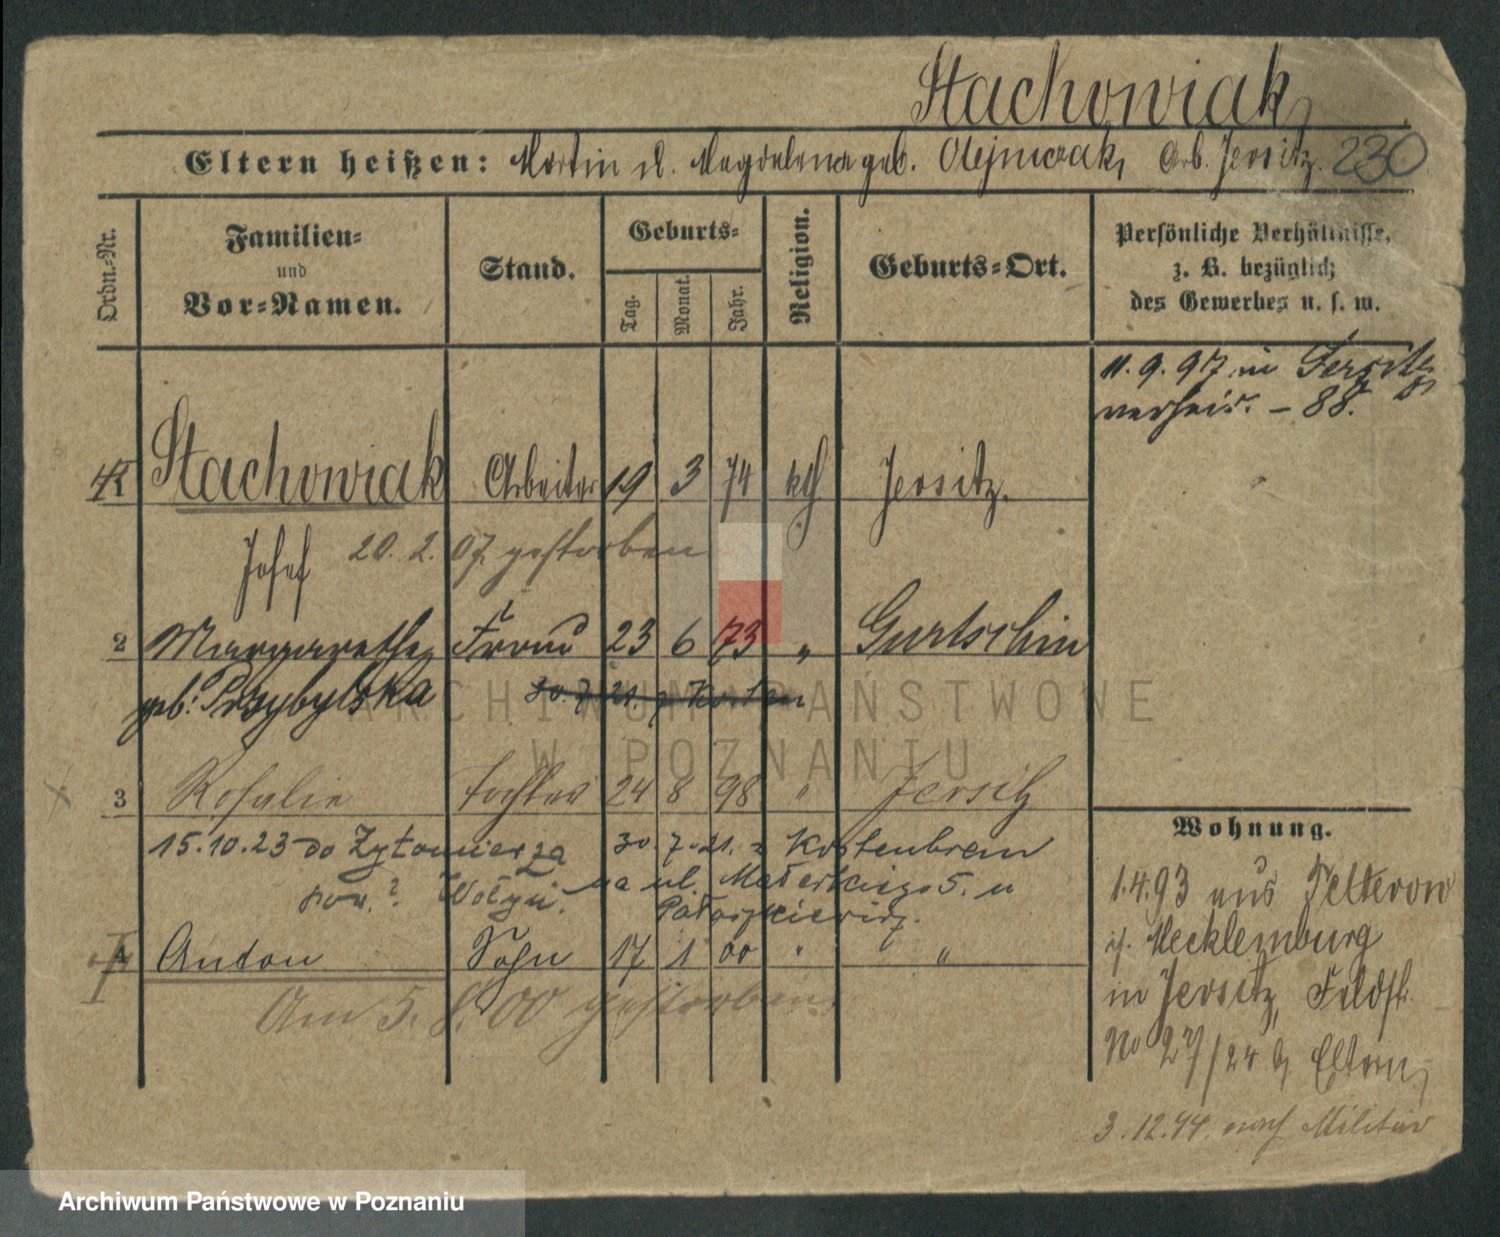 Stachowiak
Eltern heißen: Martin u. Magdalena geb. Olejniczak, Arb. Jersitz. 230
Ordn.-Nr.
Familien-
und
Vor-Namen.
Stand.
Geburts-
Tag.
Monat.
Jahr.
Religion.
Geburts-Ort.
Persönliche Verhältnisse,
z. B. bezüglich
des Gewerbes u. s. w.
11. 9. 97 in Jersitz
verheir. - 88.
1 Stachowiak Arbeiter 19 3 74 kth Jersitz.
Josef 20. 2. 07. gestorben
2 Margarethe Frau 23 6 73 " Gurtschin
geb. Przybylska 30. 7. 21.
3 Rosalie Tochter 24 8 98 " Jersitz
15.10.23 do Żytomierza 30. 7. 21. Kostenbrem
pow.? Wołyń. na ul. Małeckiego 5. u
4 Anton Sohn 17 1 00 " "
Am 5. 8. 00 gestorben.
Wohnung.
1.4.93 aus Telterow
i/. Mecklemburg
in Jersitz, Feldstr.
No 27/24 b, Eltern,
3.12.94. nach Militär
ARCHIWUM PAŃSTWOWE
W POZNANIU
Archiwum Państwowe w Poznaniu